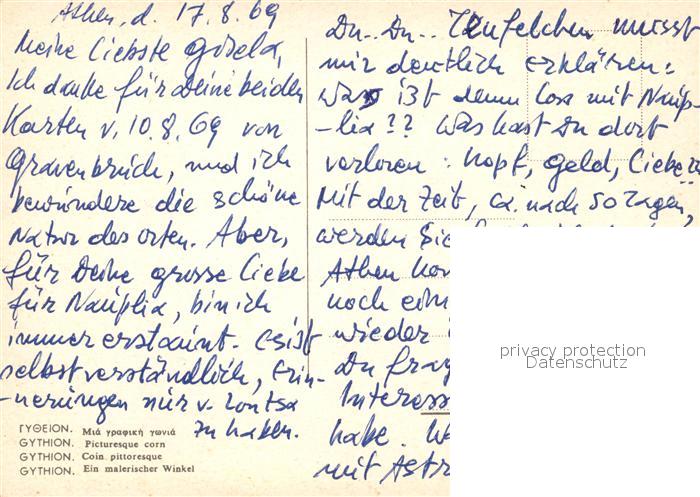 Athen, d. 17.8.69
Meine Liebste Gisela,
Ich danke für Deine beiden
Karten v. 10.8.69 von
Gravenbruch, und ich
bewundere die schöne
Natur des orten. Aber,
für Deine grosse Liebe
für Nauplia, bin ich
immer erstaunt. Es ist
selbstverständlich, Erin-
-nerungen nur v. 
zu haben.
Du.. Du.. Teufelchen musst
mir deutlich erklären:
was ist denn los mit Naup-
-lia?? Was hast Du dort
verloren: Kopf, Geld, Liebe
Mit der Zeit, ca. nach 50 Tagen,
werden Sie
Athen
noch
wieder
Du
Interess
habe.
mit
privacy protection
Datenschutz
ΓΥΘΕΙΟΝ. Μιά γραφική γωνιά
GYTHION. Picturesque corn
GYTHION. Coin pittoresque
GYTHION. Ein malerischer Winkel